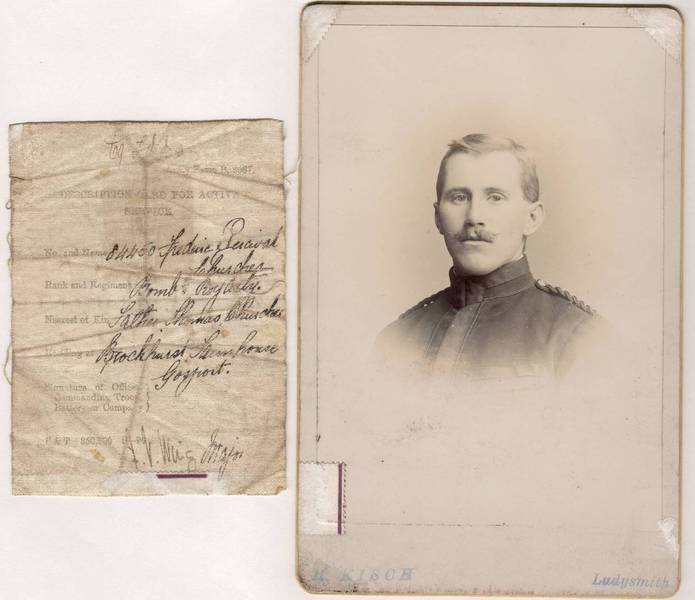 DESCRIPTION CARD FOR ACTIVE
SERVICE
No. and Name 84450 Frederic Percival
Churcher
Rank and Regiment Bombr Roy. Arty.
Nearest of Kin Father. Thomas Churcher
Brockhurst. Farmhouse
Gosport.
Signature of Officer
Commanding Troop
Battery or Company
Major
H. KISCH
Ladysmith